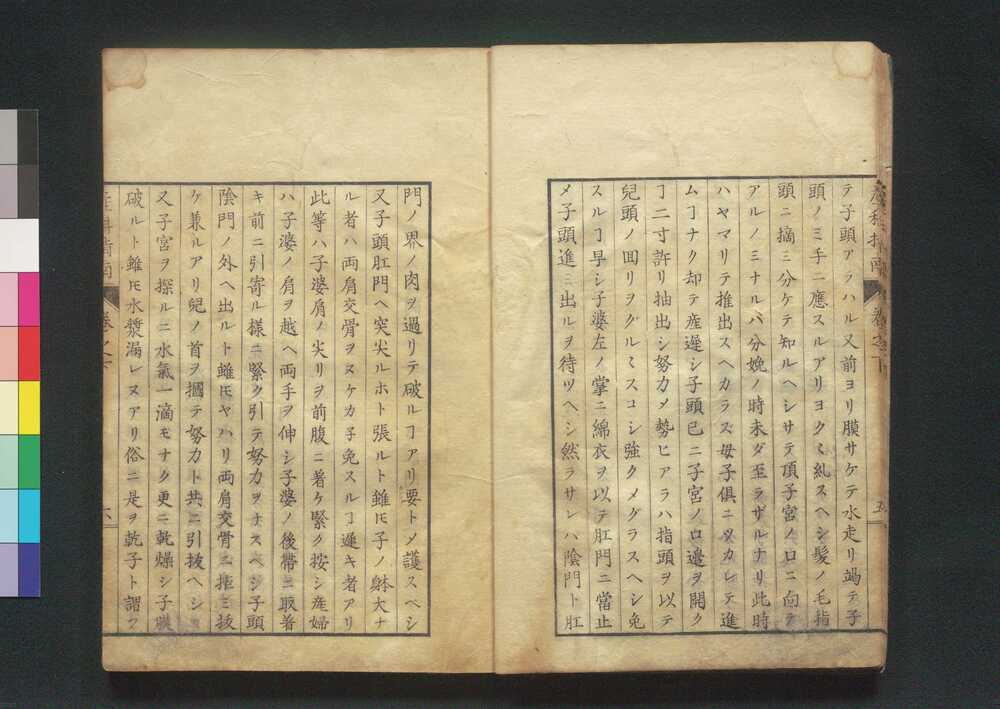 産科指南 卷之下 五
テ子頭アラハル又前ヨリ膜サケテ水走リ竭テ子
頭ノミ手ニ應スルアリヨク〱糺スヘシ髮ノ毛指
頭ニ摘ミ分ケテ知ルヘシサテ頂子宮ノ口ニ向テ
アルノミナルハ分娩ノ時未ダ至ラザルナリ此時
ハヤマリテ推出スヘカラス母子俱ニツカレテ進
ムヿナク却テ産遲シ子頭已ニ子宮ノ口邉ヲ開ク
ヿ二寸許リ抽出シ努力メ勢ヒアラハ指頭ヲ以テ
兒頭ノ囬リヲグルミスコシ強クメグラスヘシ免
スルヿ早シ子婆左ノ掌ニ綿衣ヲ以テ肛門ニ當止
メ子頭進ミ出ルヲ待ツヘシ然ラサレハ陰門ト肛
門ノ界ノ肉ヲ過リテ破ルヿアリ要トメ護スベシ
又子頭肛門ヘ突尖ルホト張ルト雖モ子ノ躰大ナ
ル者ハ両肩交骨ヲヌケカ子免スルヿ遲キ者アリ
此等ハ子婆肩ノ尖リヲ前腹ニ著ケ緊ク按シ産婦
ハ子婆ノ肩ヲ越ヘ両手ヲ伸シ子婆ノ後帶ニ取著
キ前ニ引寄ル様ニ緊ク引テ努力ヲナスベシ子頭
陰門ノ外ヘ出ルト雖モヤハリ両肩交骨ニ拒ミ抜
ケ兼ルアリ兒ノ首ヲ摑テ努力ト共ニ引抜ヘシ
又子宮ヲ探ルニ水氣一滴モナク更ニ乾燥シ子膜
破ルト雖モ水漿漏レヌアリ俗ニ是ヲ乾子ト謂フ
産科指南 卷之下 六